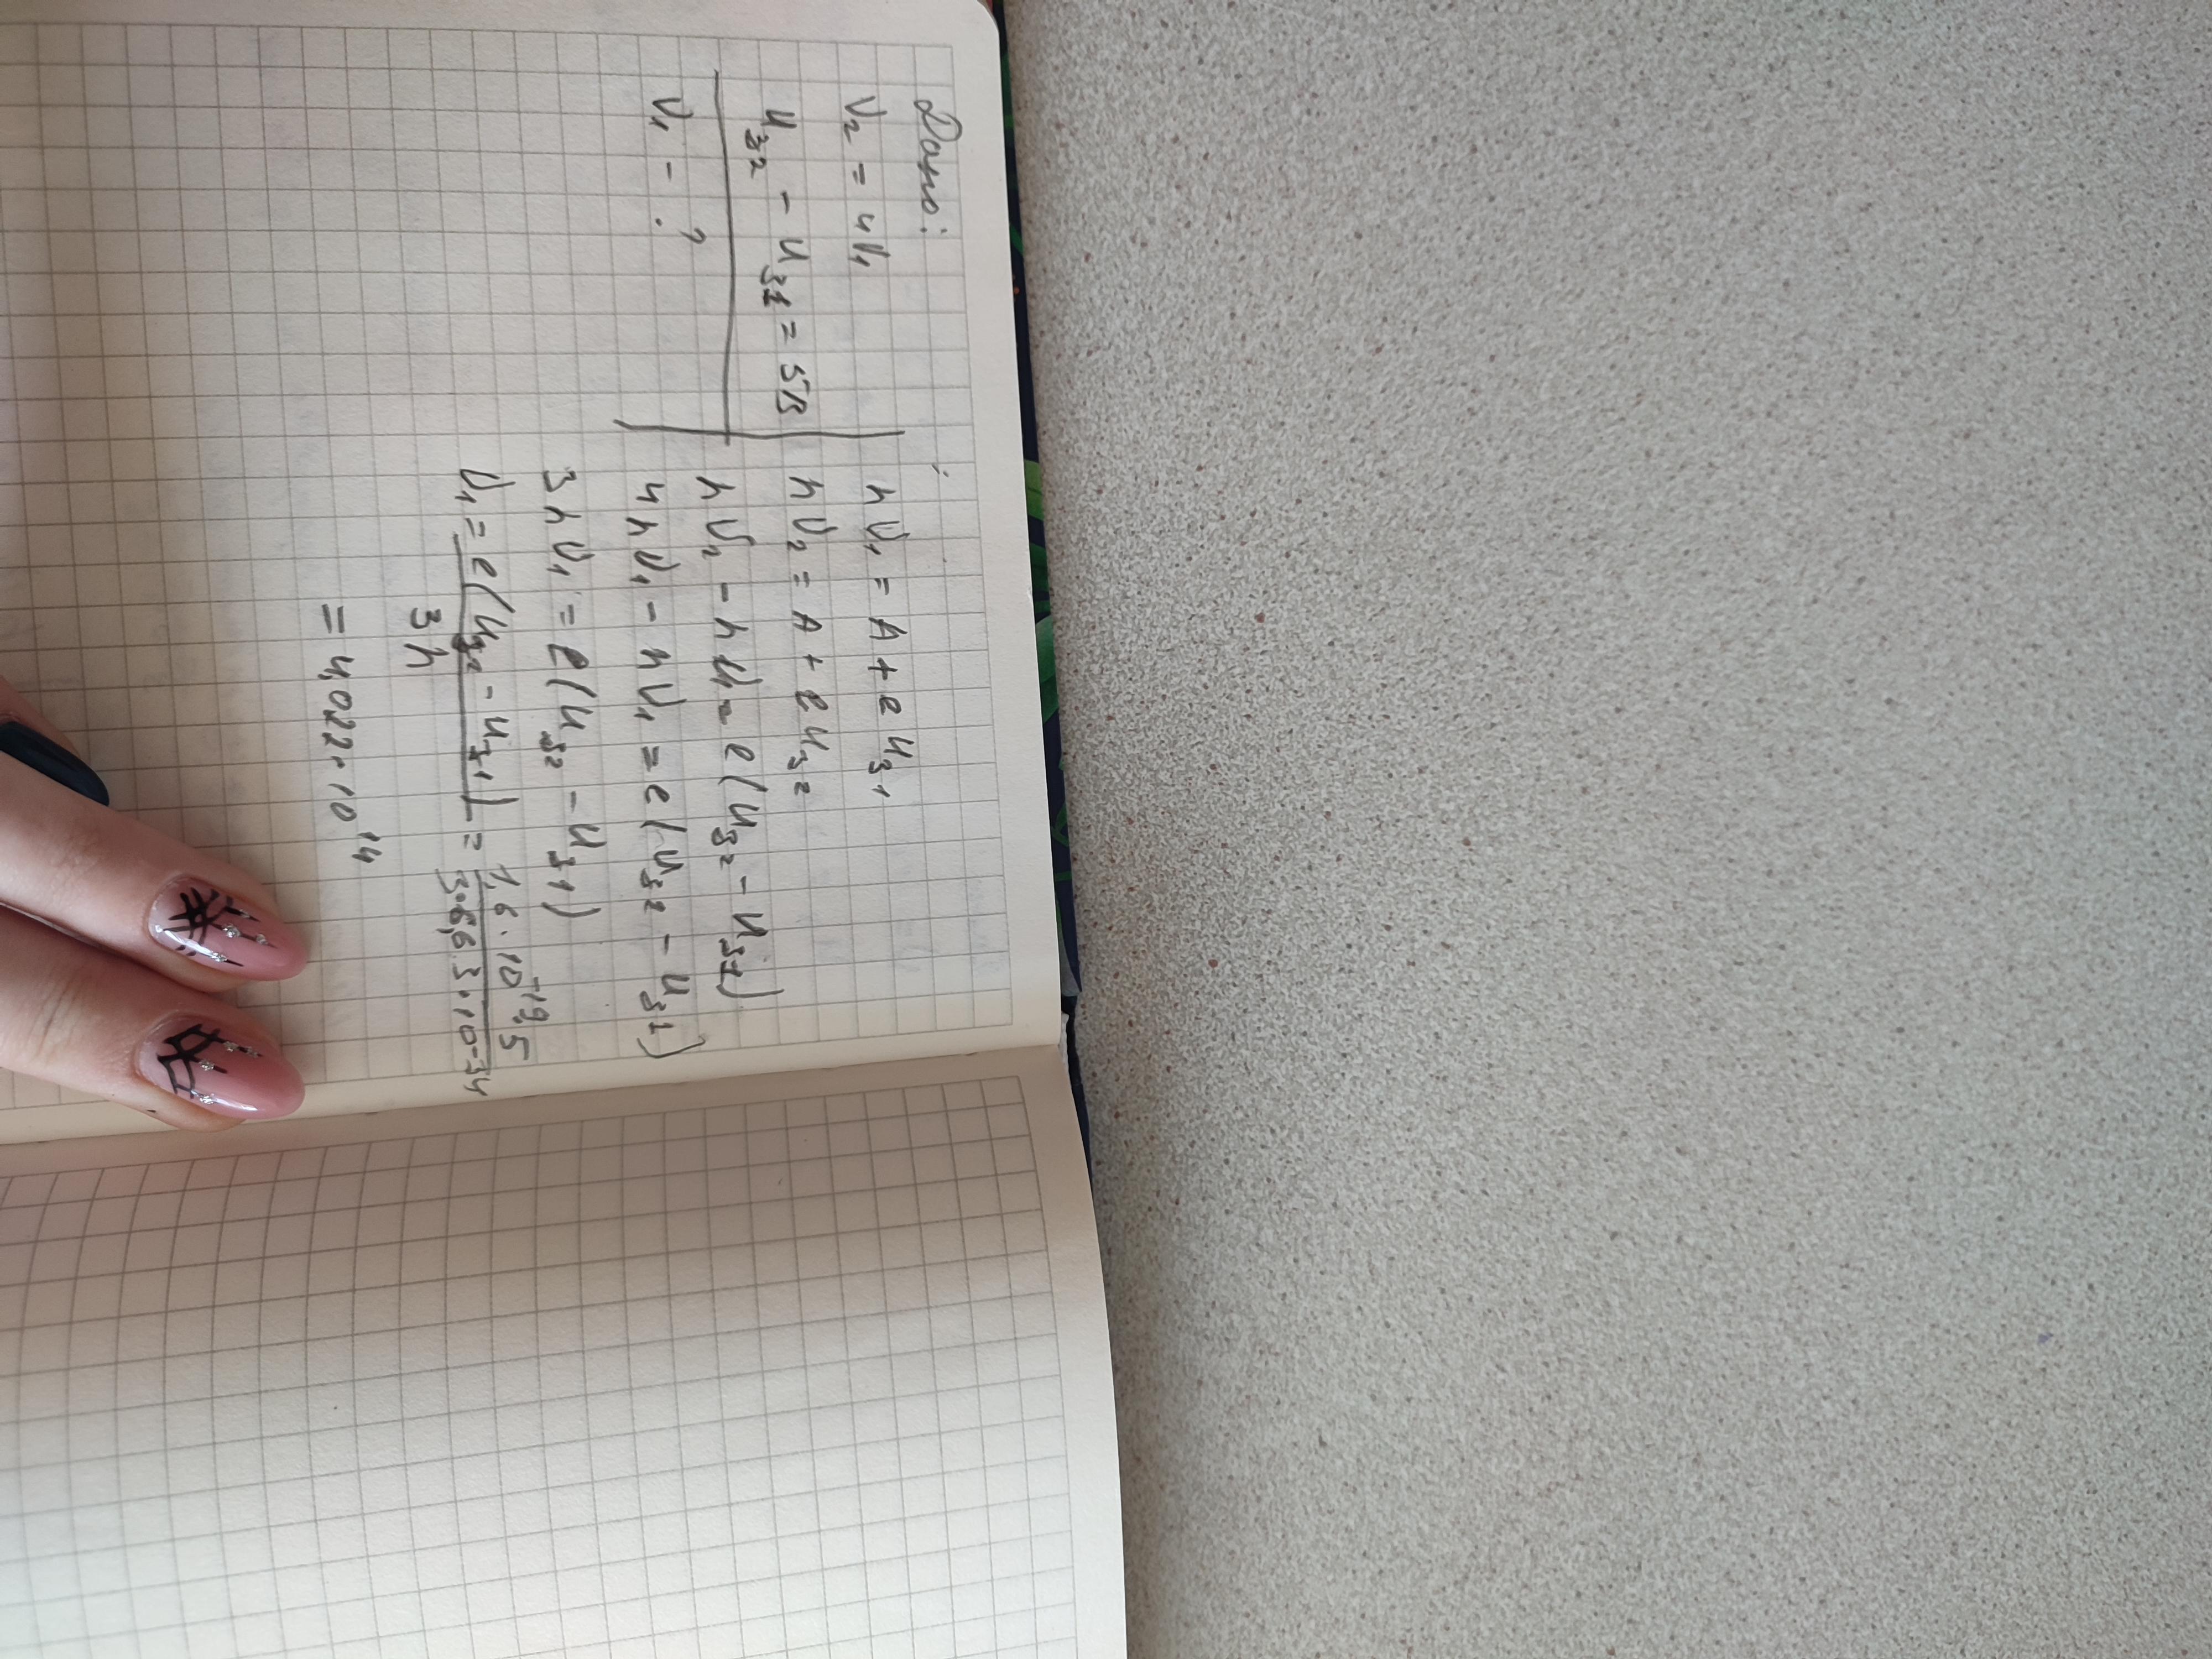 Дано:
ν₂ = 4ν₁
U₃₂ - U₃₁ = 5В
ν₁ - ?
hν₁ = A + eU₃₁
hν₂ = A + eU₃₂
hν₂ - hν₁ = e(U₃₂ - U₃₁)
4hν₁ - hν₁ = e(U₃₂ - U₃₁)
3hν₁ = e(U₃₂ - U₃₁)
ν₁ = e(U₃₂ - U₃₁) / 3h = 1,6 · 10⁻¹⁹ · 5 / 3 · 6,63 · 10⁻³⁴
= 4,022 · 10¹⁴